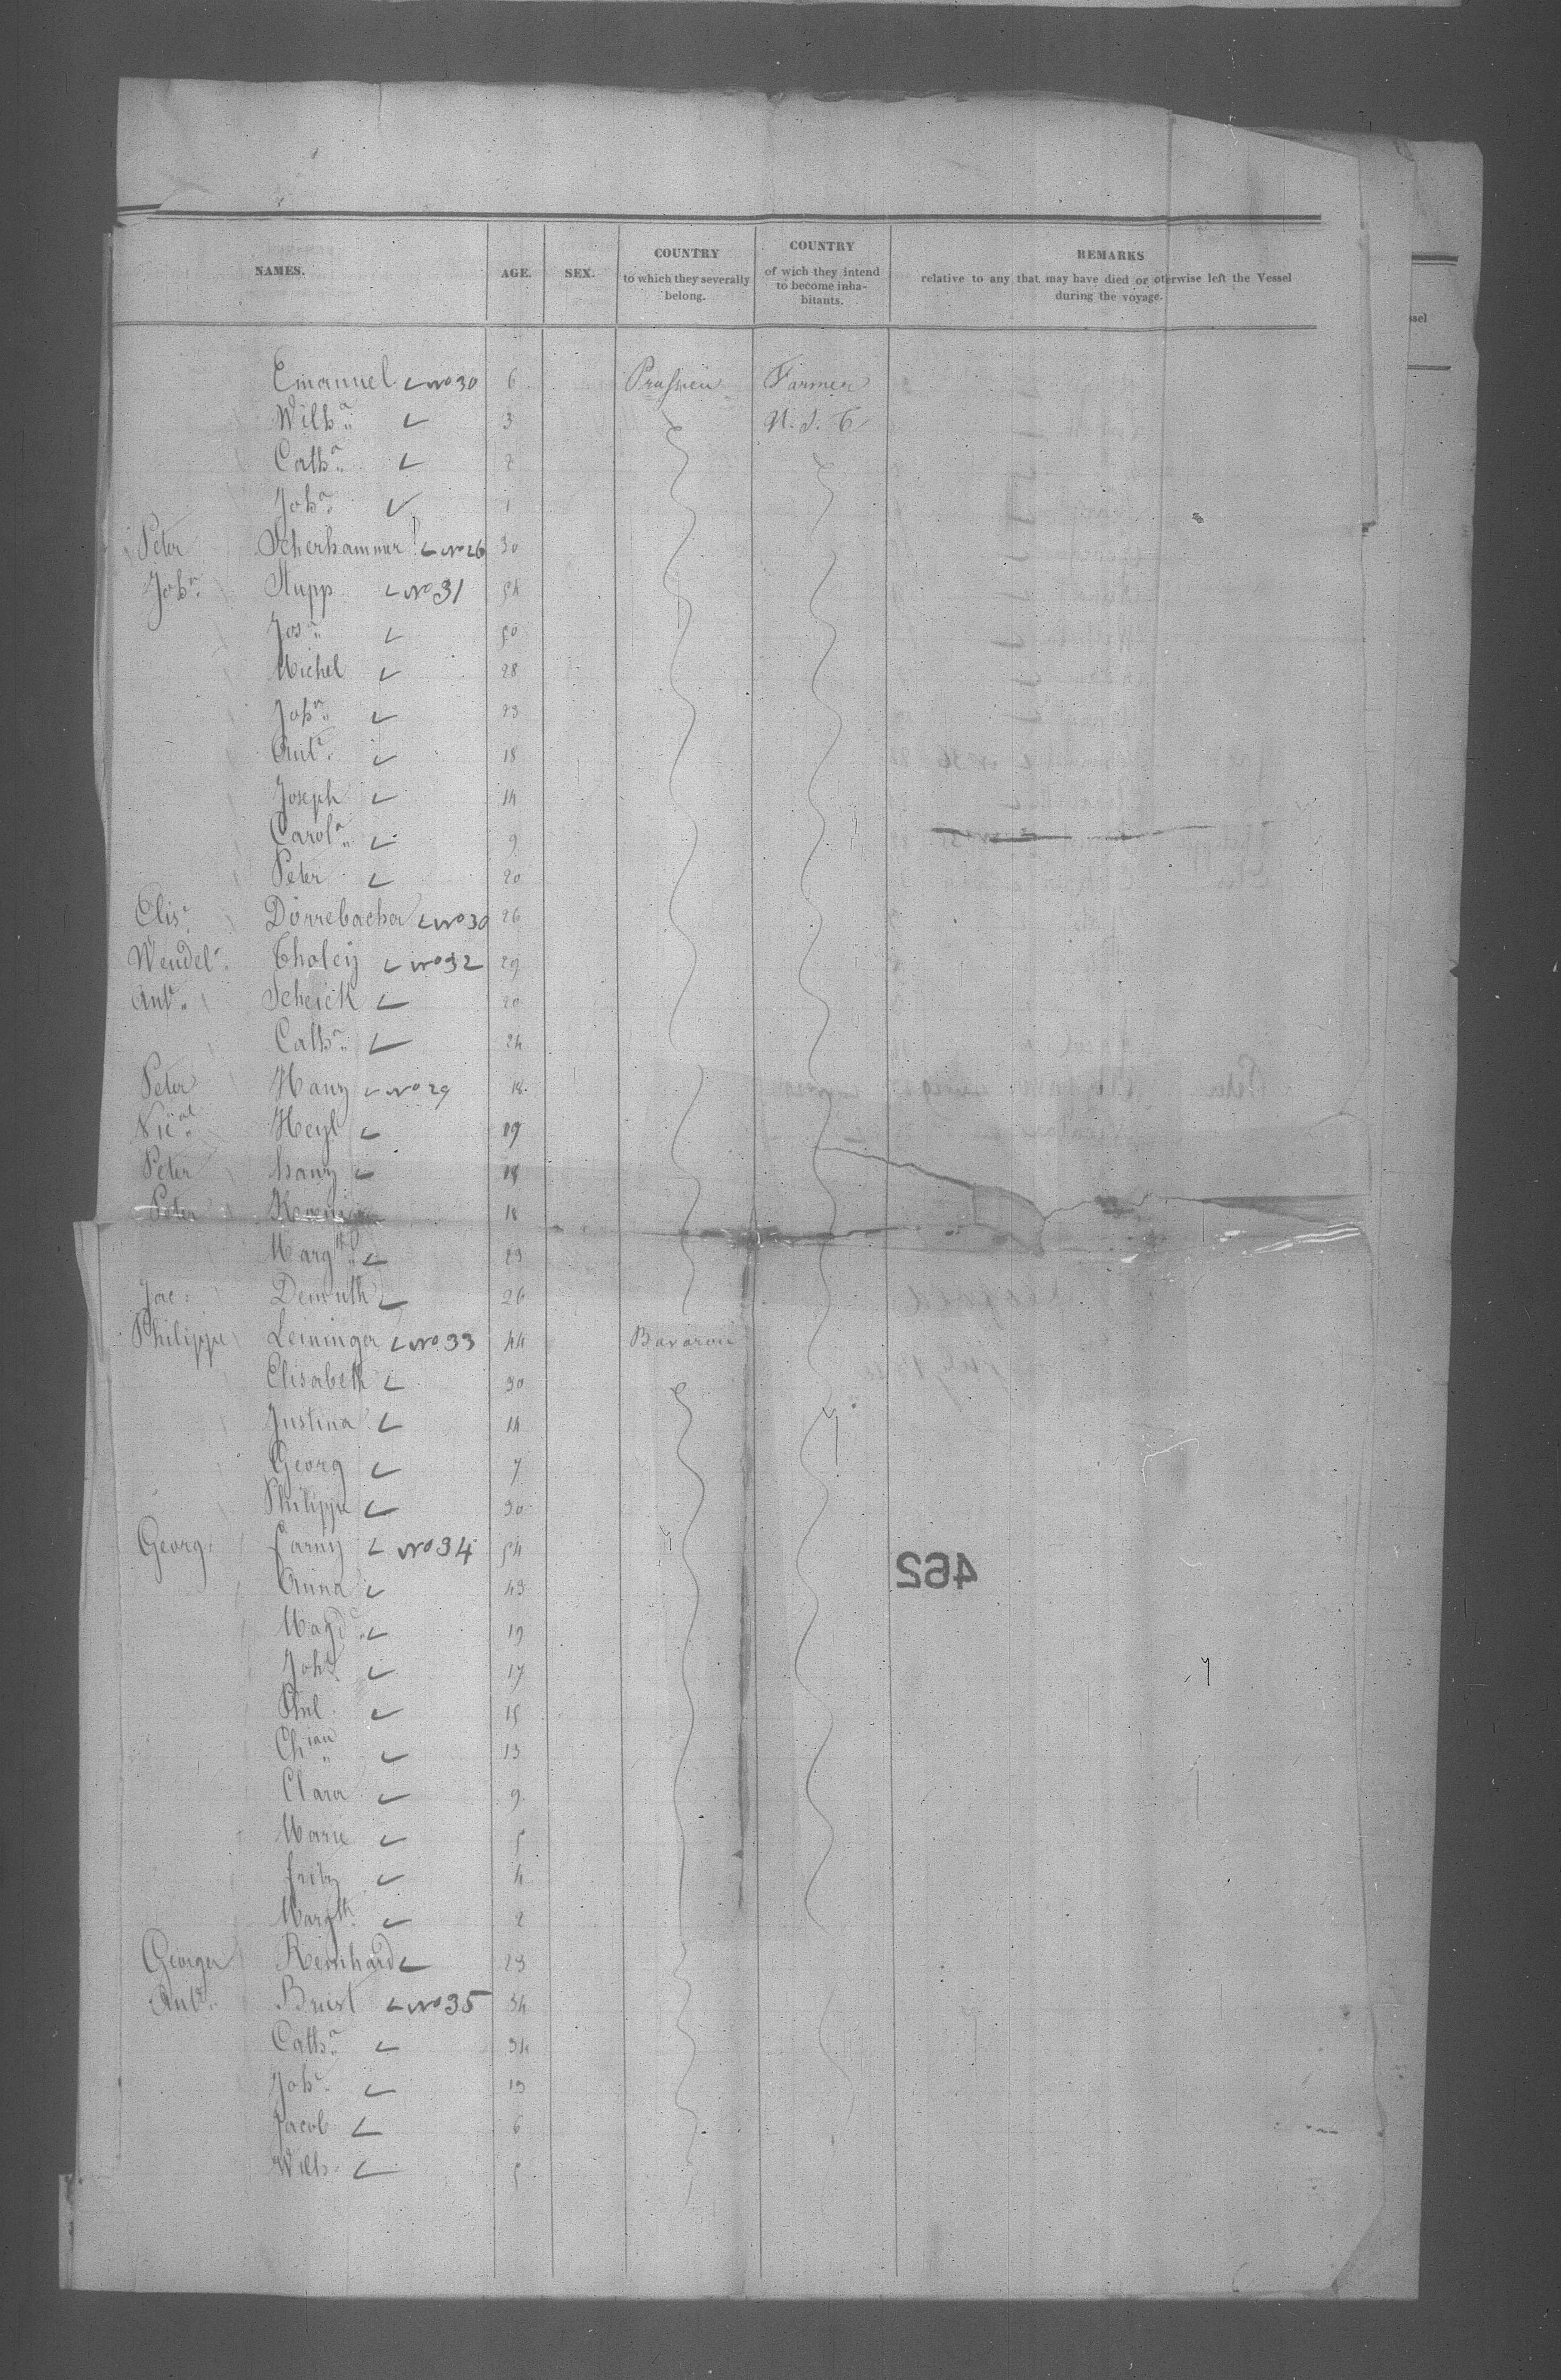 NAMES. AGE. SEX. COUNTRY to which they severally belong. COUNTRY of wich they intend to become inhabitants. REMARKS relative to any that may have died or oterwise left the Vessel during the voyage.
ssel
Emanuel No 30 6 Prussien Farmer
Wilhª 3 U. S. T.
Cathª 2
Johª 1
Peter Scherhammer No 26 30
Johⁿ Stupp No 31 54
Josª 50
Michel 28
Johⁿ 23
Antⁿ 18
Joseph 14
Carolª 9
Peter 20
Elisª Dörrebacher No 30 26
Wendelⁿ Tholey No 32 29
Antⁿ Scheick 20
Cathª 24
Peter Hany No 29 18
Nicol Heyl 19
Peter hany 18
Peter 18
Margth 23
Jac: Demuth 26
Philippe Leininger No 33 44 Bavaroie
Elisabeth 30
Justina 14
Georg 7
Philippe 30
Georg farny No 34 54
Anna 43
Magdª 19
Johⁿ 17
Phil 15
Chian 13
Clara 9
Marie 5
fritz 4
Margth 2
462
George Reinhard 23
Antⁿ Brust No 35 34
Cathª 34
Johⁿ 13
Jacob 6
Wilh 5